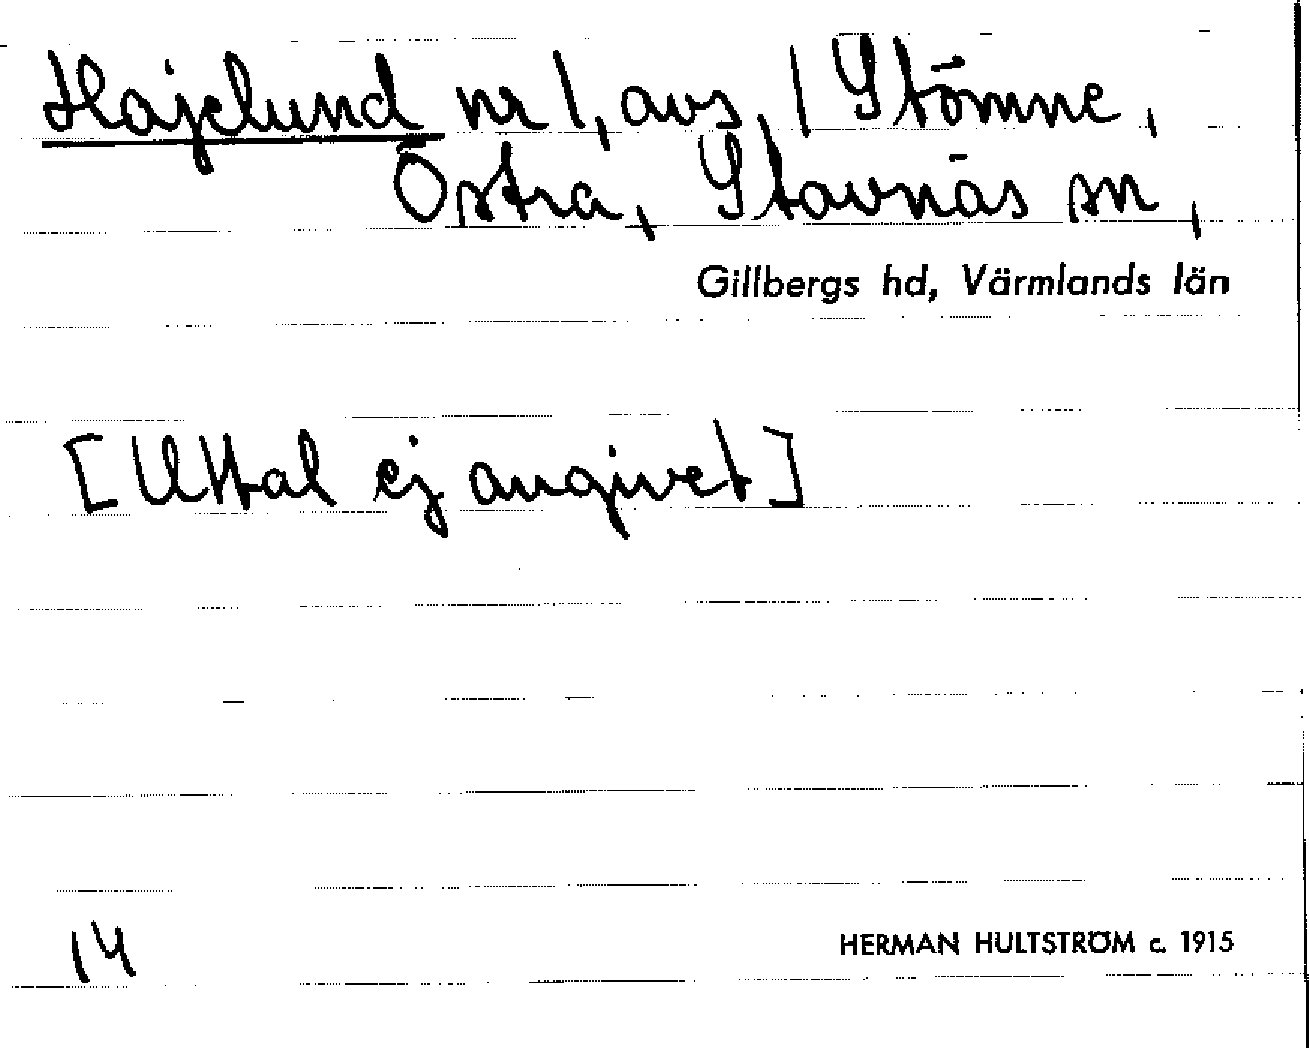 Hajelund nr 1, avs. 1 Stömne,
Östra, Stavnäs sn,
Gillbergs hd, Värmlands län
[Uttal ej angivet]
14
HERMAN HULTSTRÖM c. 1915